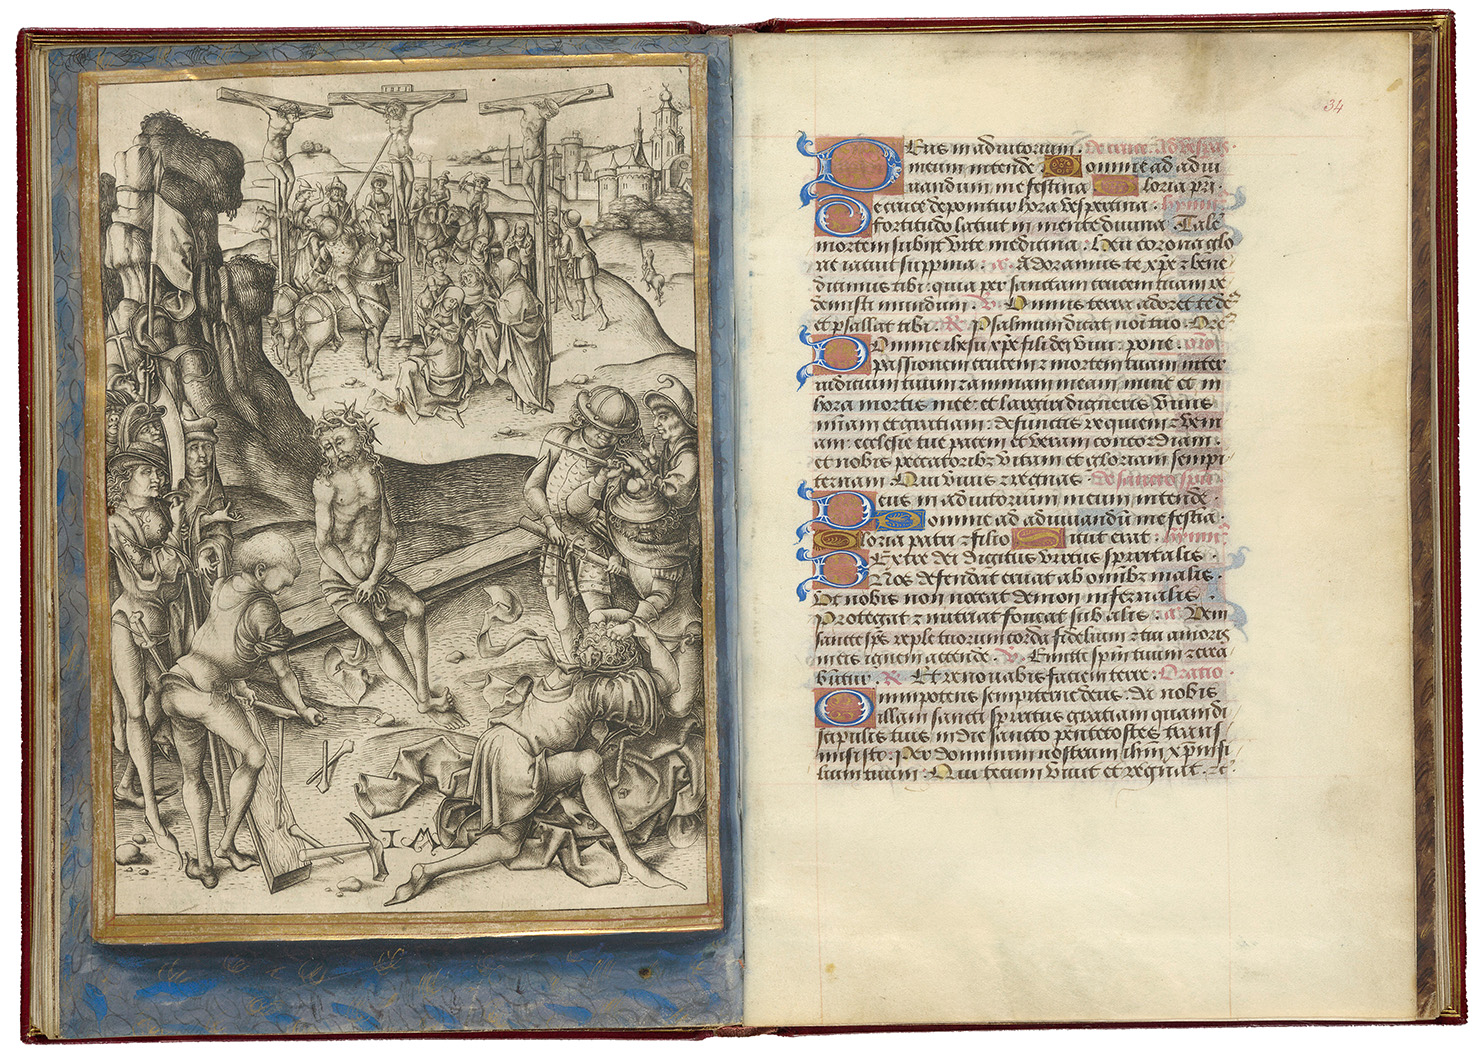 IM
34
Deus in adiutorium · De cruce. Ad vesperas
meum intende Domine ad adiu
uandum me festina Gloria pri·
De cruce deponitur hora vespertina · hymnus
fortitudo latuit in mente divina Tale
mortem subijt vite medicina · Heu corona glo
rie iacuit suppina · Adoramus te xpe z bene
dicimus tibi · quia per sanctam crucem tuam re
demisti mundum · V Omnis terra adoret te de9
et psallat tibi · R Psalmum dicat noi tuo · Ore9
Domine ihesu xpe fili dei viui · pone ·
passionem crucem z mortem tuam inter
iudicium tuum z animam meam nunc et in
hora mortis mee · et largiri digneris viuis
miam et gratiam · defunctis requiem z veni
am · ecclesie tue pacem et veram concordiam ·
et nobis peccatoribz vitam et gloriam sempi
ternam Qui viuis z regnas · De sancto spu
Deus in adiutorium meum intende ·
Domine ad adiuuandū me festia ·
Gloria patri z filio Sicut erat · hymn9
Dextre dei digitus virtus spiritalis ·
Nos defendat eruat ab omibz malis ·
Vt nobis non noceat demon infernalis
Protegat z nutriat foueat sub alis · Veni
sancte sps reple tuorum corda fidelium z tui amoris
in eis ignem accende · V Emitte spm tuum z crea
buntur · R Et renouabis faciem terre · Oratio
Omnipotens sempiterne deus · da nobis
illam sancti spiritus gratiam quam di
scipulis tuis in die sancto pentecostes trans
misisti · Per dominum nostrum ihm xpm fi
lium tuum · Qui tecum viuit et regnat · zc ·